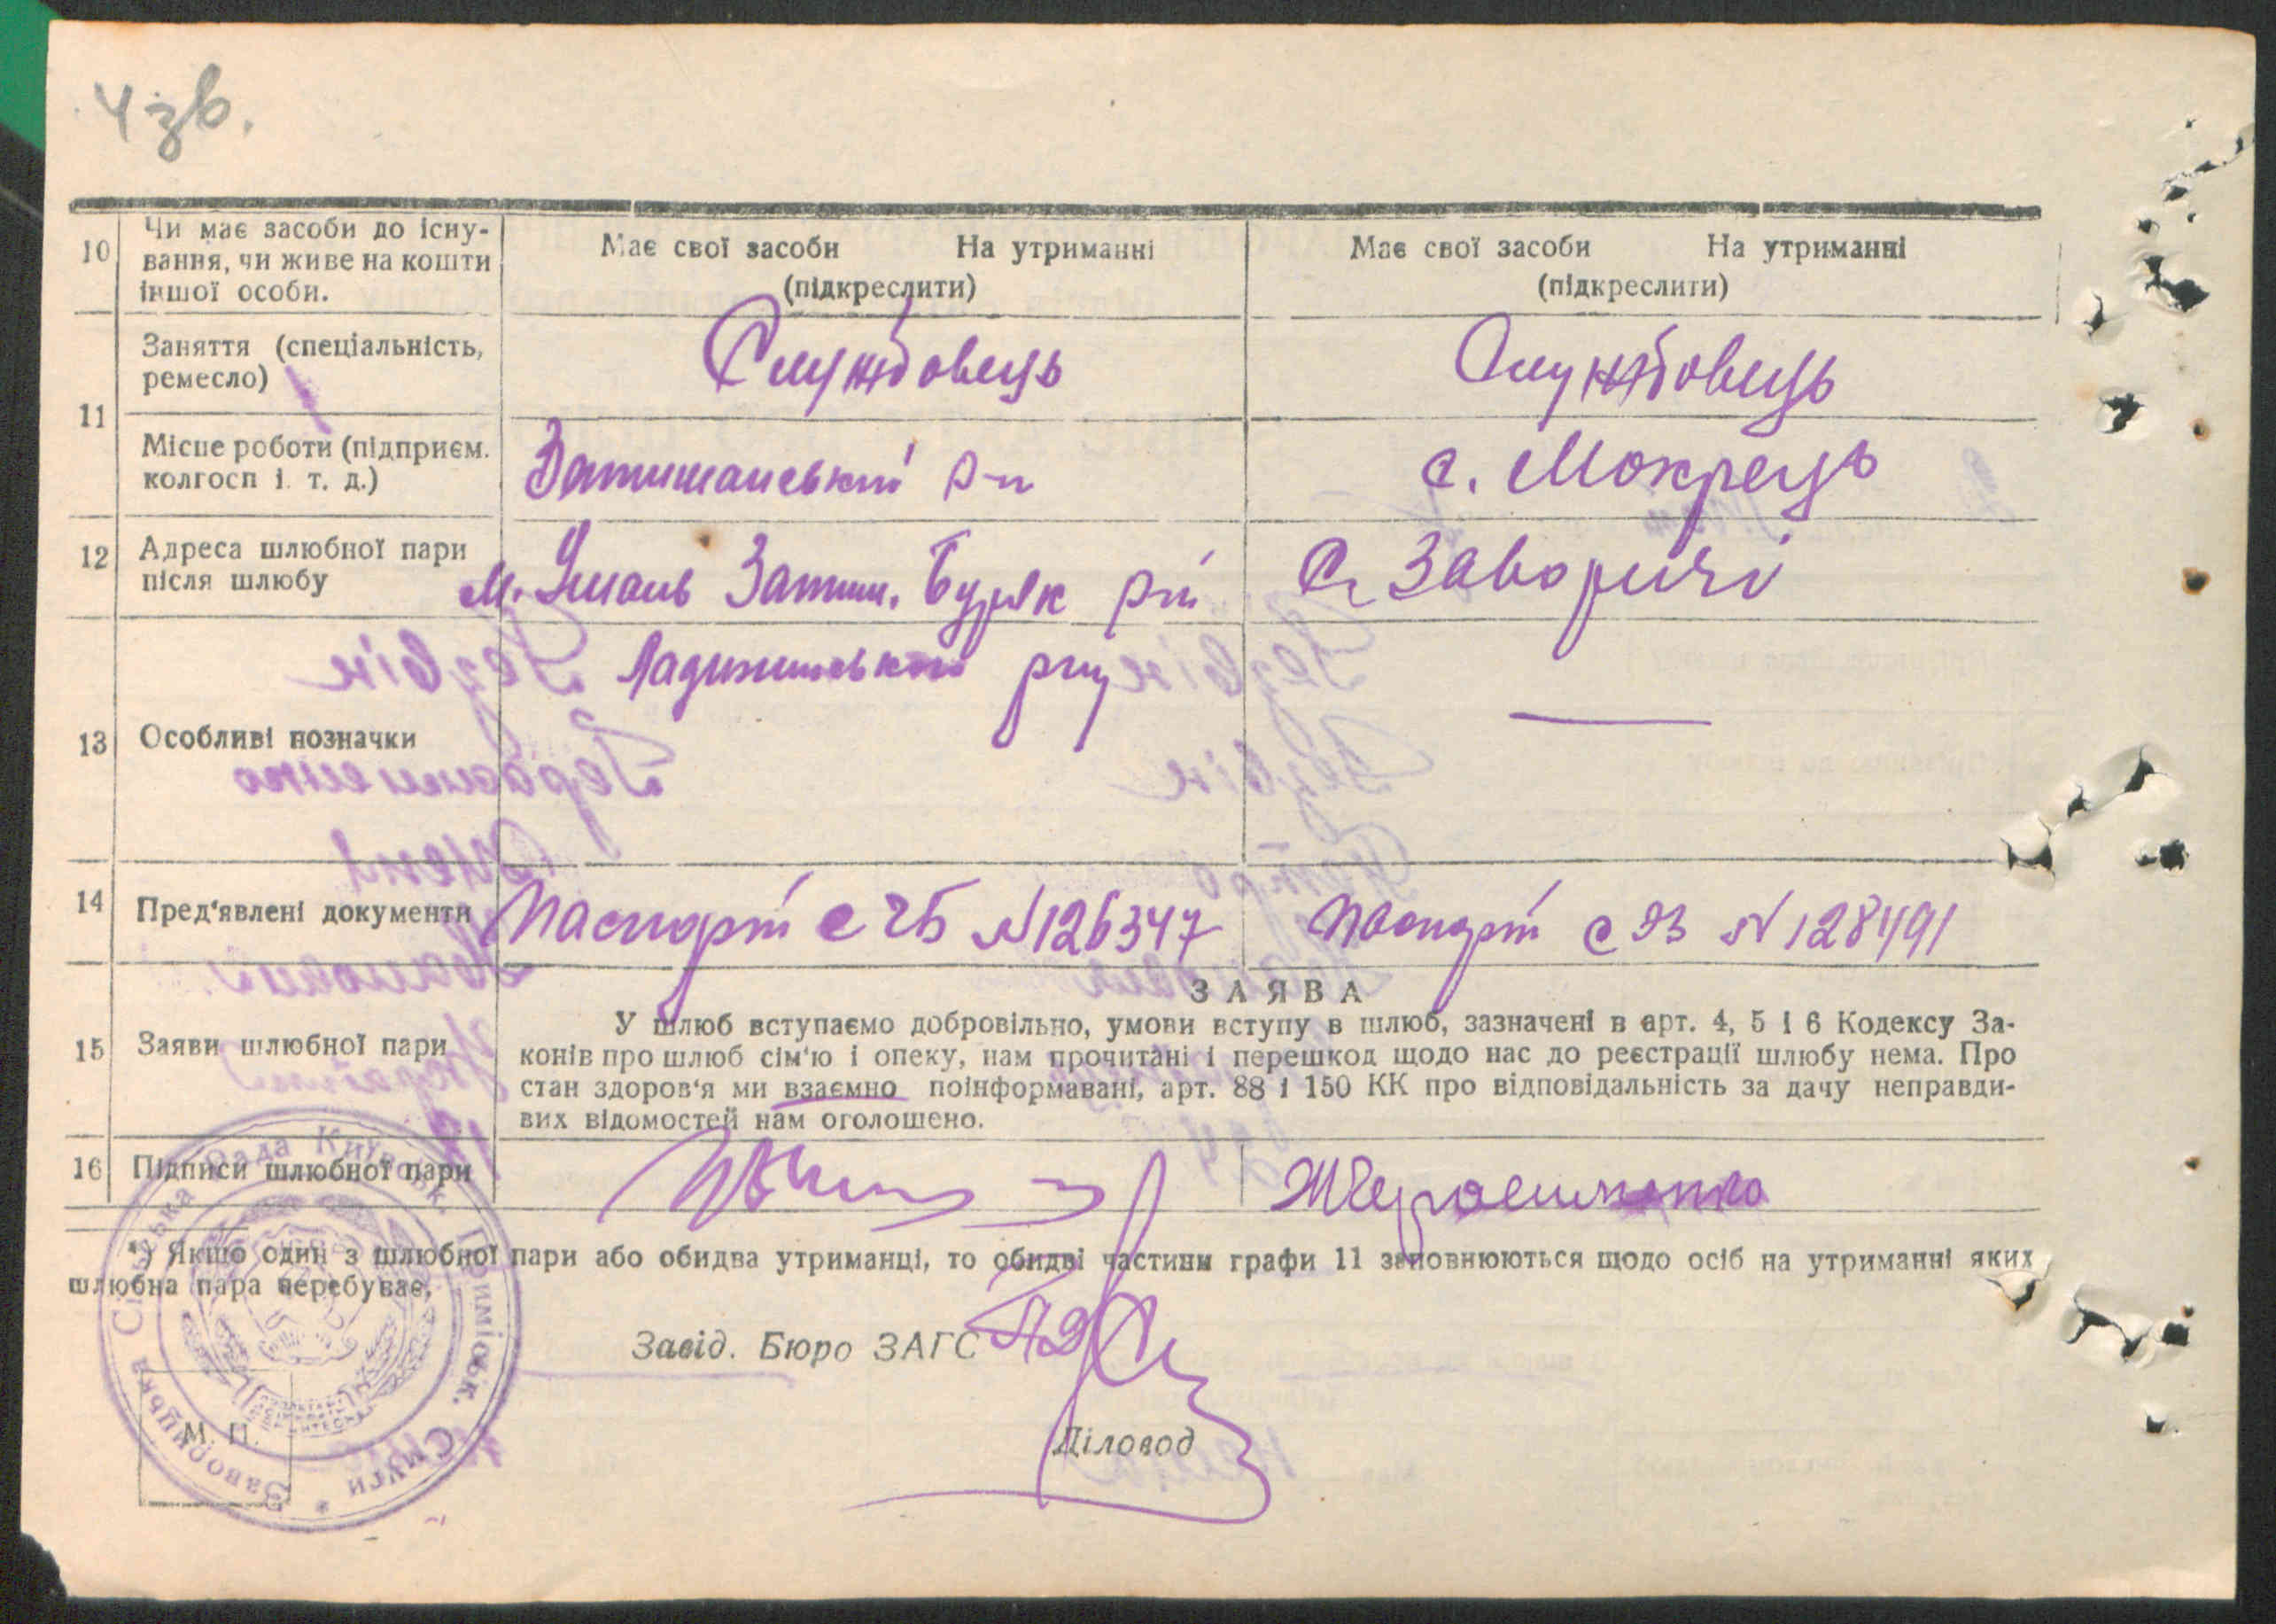 4 зв.
10 Чи має засоби до існу-
вання, чи живе на кошти
іншої особи.
Має свої засоби На утриманні
(підкреслити)
Має свої засоби На утриманні
(підкреслити)
11
Заняття (спеціальність,
ремесло)
Службовець
Службовець
Місце роботи (підприєм.
колгосп і. т. д.)
Затишанський р-н
с. Мокрець
12 Адреса шлюбної пари
після шлюбу
м. Умань Затиш. Буряк
Ладижинського р-ну
с. Заворичі
13 Особливі позначки
14 Пред'явлені документи
Паспорт с ЧБ № 126347
Паспорт с ЭЗ № 128491
15 Заяви шлюбної пари
ЗАЯВА
У шлюб вступаємо добровільно, умови вступу в шлюб, зазначені в арт. 4, 5 і 6 Кодексу За-
конів про шлюб сім'ю і опеку, нам прочитані і перешкод щодо нас до реєстрації шлюбу нема. Про
стан здоров'я ми взаємно поінформавані, арт. 88 і 150 КК про відповідальність за дачу неправди-
вих відомостей нам оголошено.
16 Підписи шлюбної пари
*) Якщо один з шлюбної пари або обидва утриманці, то обидві частини графи 11 заповнюються щодо осіб на утриманні яких
шлюбна пара перебуває.
Завід. Бюро ЗАГС
М. П.
Діловод
Заворицька Сільська Рада Київськ. Приміськ. Смуги *